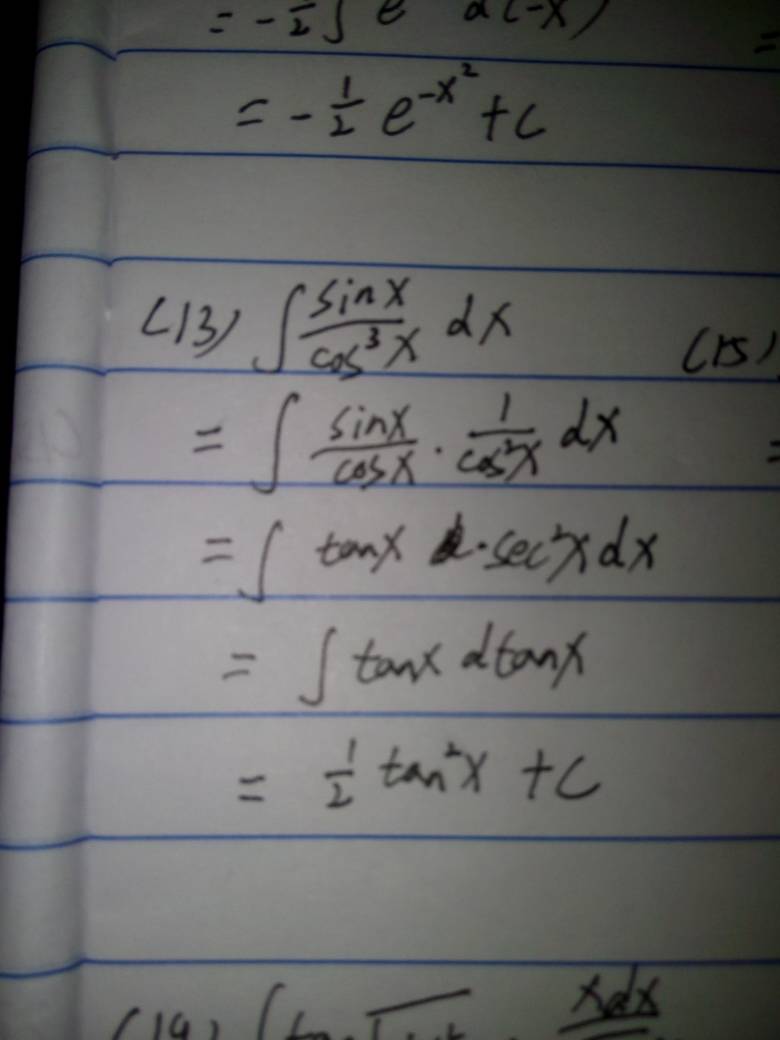 = -½∫ e d(-x)
= -½ e^{-x²} + C
(13) ∫ sinx/cos³x dx
= ∫ sinx/cosx · 1/cos²x dx
= ∫ tanx · sec²x dx
= ∫ tanx dtanx
= ½ tan²x + C
(15)
=
(14) ∫ tan xdx